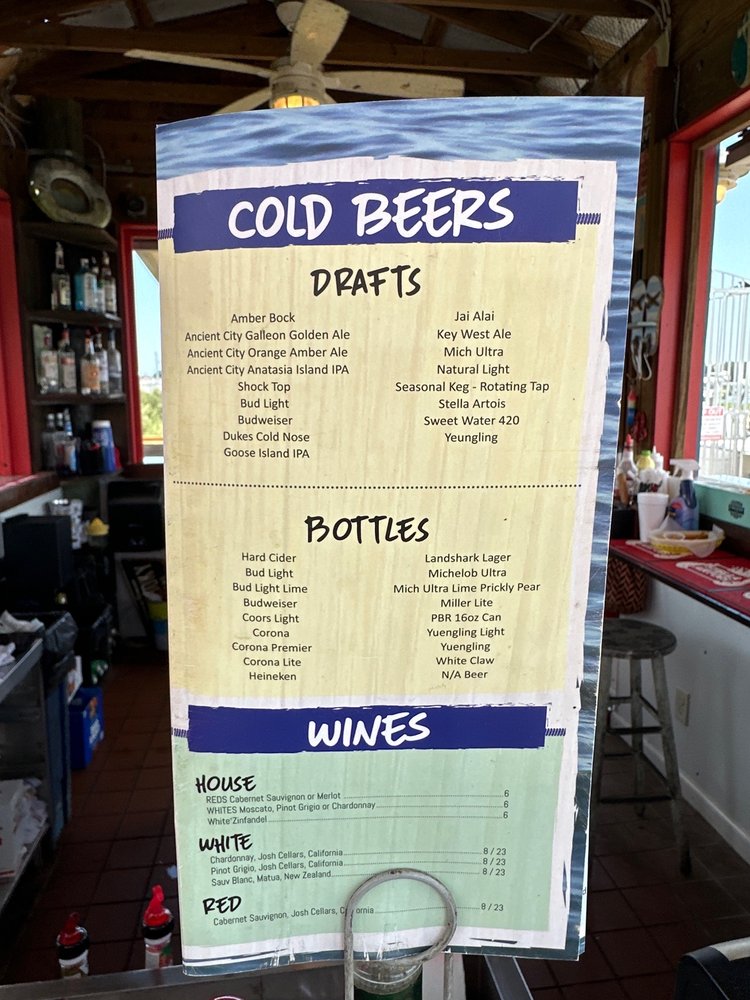 COLD BEERS
DRAFTS
Amber Bock
Ancient City Galleon Golden Ale
Ancient City Orange Amber Ale
Ancient City Anatasia Island IPA
Shock Top
Bud Light
Budweiser
Dukes Cold Nose
Goose Island IPA
Jai Alai
Key West Ale
Mich Ultra
Natural Light
Seasonal Keg - Rotating Tap
Stella Artois
Sweet Water 420
Yeungling
BOTTLES
Hard Cider
Bud Light
Bud Light Lime
Budweiser
Coors Light
Corona
Corona Premier
Corona Lite
Heineken
Landshark Lager
Michelob Ultra
Mich Ultra Lime Prickly Pear
Miller Lite
PBR 16oz Can
Yuengling Light
Yuengling
White Claw
N/A Beer
WINES
HOUSE
REDS Cabernet Sauvignon or Merlot 6
WHITES Moscato, Pinot Grigio or Chardonnay 6
White Zinfandel 6
WHITE
Chardonnay, Josh Cellars, California 8 / 23
Pinot Grigio, Josh Cellars, California 8 / 23
Sauv Blanc, Matua, New Zealand 8 / 23
RED
Cabernet Sauvignon, Josh Cellars, California 8 / 23